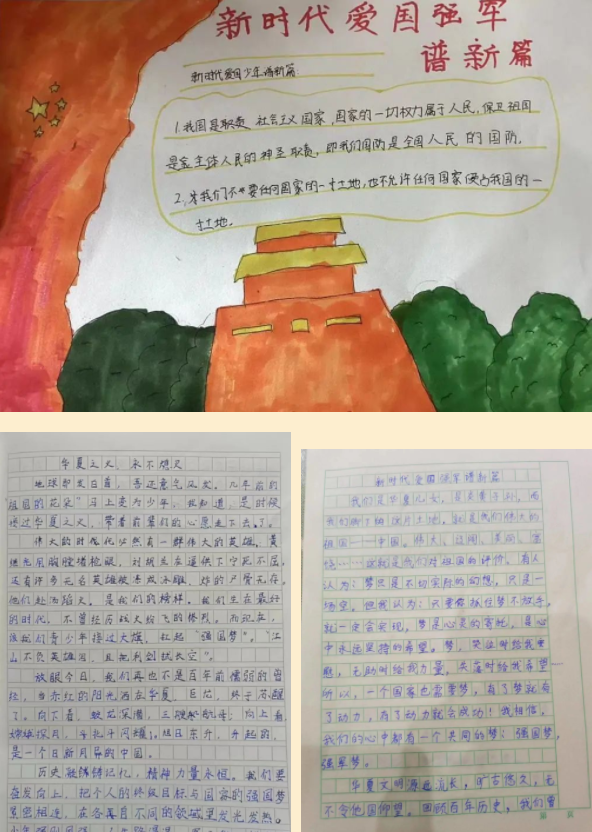 新时代爱国强军
谱新篇
新时代爱国少年谱新篇:
1.我国是 社会主义国家,国家的一切权力属于人民,保卫祖国
是 全体人民的神圣职责,即我们国防是全国人民的国防。
2. 我们不 要任何国家的一寸土地,也不允许任何国家侵占我国的一
寸土地。
华夏之火,永不熄灭
地球即发白首,吾还意气风发。几年前的
祖国的花朵”马上变为少年,我知道,是时候
接过华夏之火,带着前辈们的心愿走下去了。
伟大的时代必然有一群伟大的英雄。黄
继光用胸膛堵枪眼,刘胡兰在逼供下宁死不屈,
还有许多无名英雄被冻成冰雕,炸的尸骨无存。
他们赴汤蹈火,是我们的榜样。我们生在最好
的时代,不曾经历战火纷飞的惨烈。而现在,
该我们青少年接过大旗,扛起“强国梦”。“江
山不负英雄泪,且把利剑破长空”。
放眼今日,我们再也不是百年前懦弱的曾
经,当赤红的阳光洒在华夏,巨龙,终于苏醒
了。向下看,蛟龙深潜,三艘航母;向上看,
嫦娥探月,斗扎千闪耀。旭日东升,升起的,
是一个日新月异的中国。
历史凝铸铸记忆,精神力量永恒。我们要
奋发向上,把个人的终极目标与国家的强国梦
紧密相连,在各自不同的领域里发光发热。
新时代爱国强军谱新篇
我们是华夏儿女,是炎黄子孙,而
我们脚下的这片土地,就是我们伟大的
祖国——中国。伟大、辽阔、美丽、富
饶……这就是我们对祖国的评价。有人
认为:梦只是不切实际的幻想,只是一
场空。但我认为:只要你抓住梦不放手,
就一定会实现,梦是心灵的寄托,是心
中永远坚持的希望。梦,哭泣时给我安
慰,无助时给我力量,失落时给我希望…
所以,一个国家也需要梦,有了梦就有
了动力,有了动力就会成功!我相信,
我们的心中都有一个共同的梦:强国梦,
强军梦。
华夏文明源远流长,旷古悠久,无
不令他国仰望。回顾百年历史,我们曾